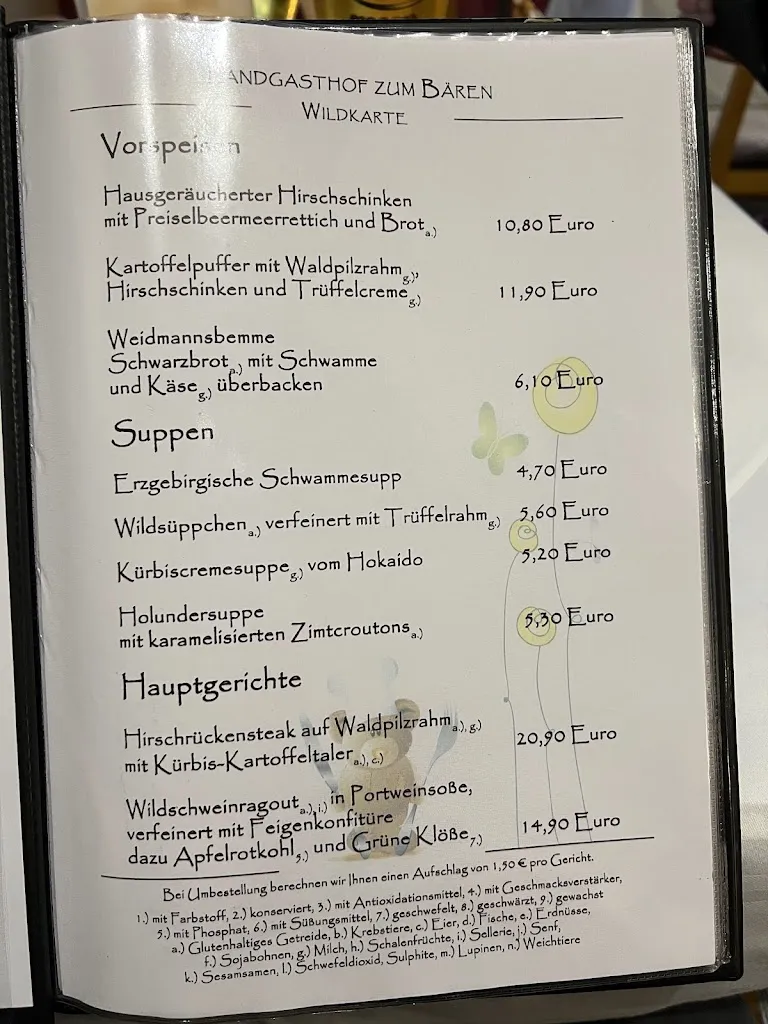 LANDGASTHOF ZUM BÄREN
WILDKARTE
Vorspeisen
Hausgeräucherter Hirschschinken
mit Preiselbeermeerrettich und Brot a.) 10,80 Euro
Kartoffelpuffer mit Waldpilzrahm g.),
Hirschschinken und Trüffelcreme g.) 11,90 Euro
Weidmannsbemme
Schwarzbrot a.) mit Schwamme
und Käse g.) überbacken 6,10 Euro
Suppen
Erzgebirgische Schwammesupp 4,70 Euro
Wildsüppchen a.) verfeinert mit Trüffelrahm g.) 5,60 Euro
Kürbiscremesuppe g.) vom Hokaido 5,20 Euro
Holundersuppe
mit karamelisierten Zimtcroutons a.) 5,30 Euro
Hauptgerichte
Hirschrückensteak auf Waldpilzrahm a.), g.)
mit Kürbis-Kartoffeltaler a.), c.) 20,90 Euro
Wildschweinragout a.), i.) in Portweinsoße,
verfeinert mit Feigenkonfitüre
dazu Apfelrotkohl 5.) und Grüne Klöße 7.) 14,90 Euro
Bei Umbestellung berechnen wir Ihnen einen Aufschlag von 1,50 € pro Gericht.
1.) mit Farbstoff, 2.) konserviert, 3.) mit Antioxidationsmittel, 4.) mit Geschmacksverstärker,
5.) mit Phosphat, 6.) mit Süßungsmittel, 7.) geschwefelt, 8.) geschwärzt, 9.) gewachst
a.) Glutenhaltiges Getreide, b.) Krebstiere, c.) Eier, d.) Fische, e.) Erdnüsse,
f.) Sojabohnen, g.) Milch, h.) Schalenfrüchte, i.) Sellerie, j.) Senf,
k.) Sesamsamen, l.) Schwefeldioxid, Sulphite, m.) Lupinen, n.) Weichtiere